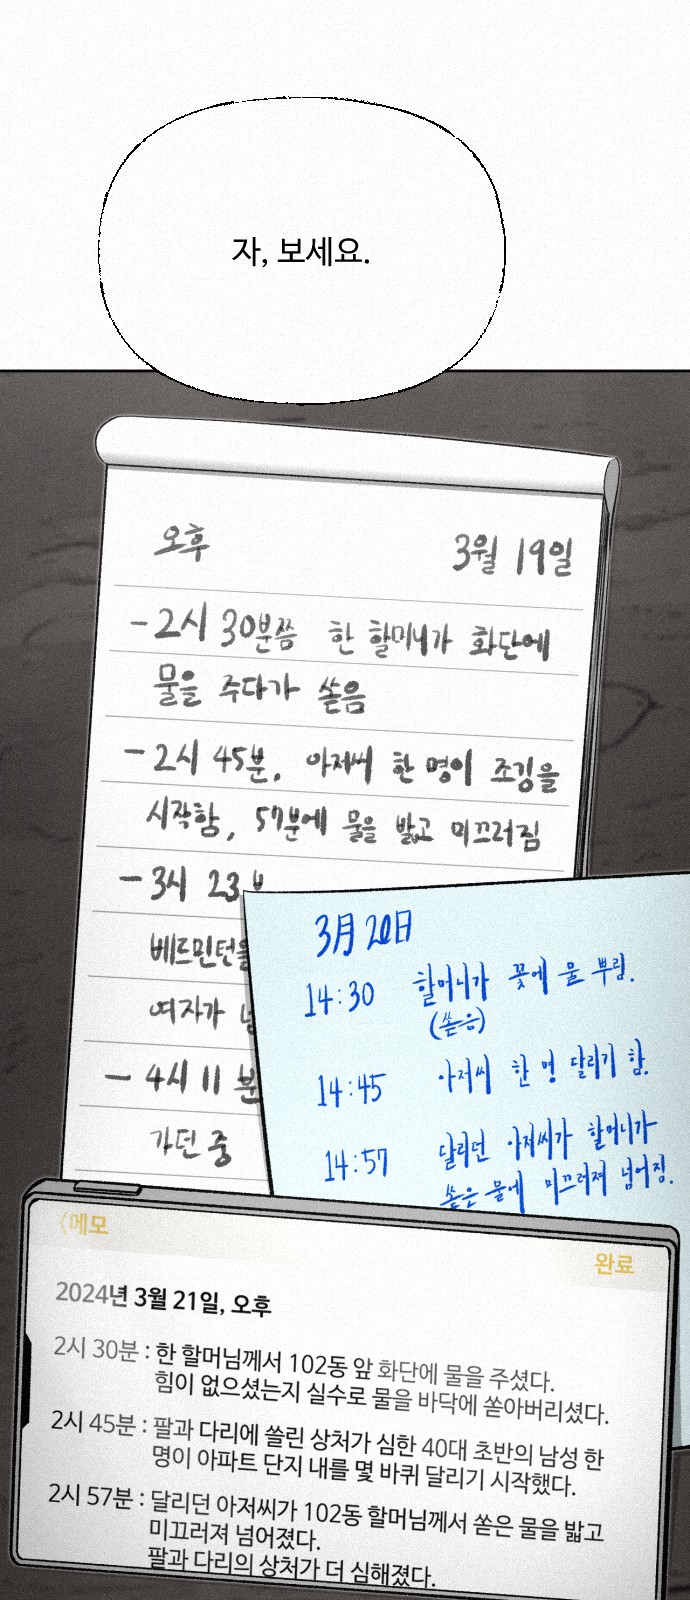 자, 보세요.
오후 3월 19일
-2시 30분쯤 한 할머니가 화단에
물을 주다가 쏟음
-2시 45분, 아저씨 한 명이 조깅을
시작함, 57분에 물을 밟고 미끄러짐
-3시 23
베드민턴을
여자가
-4시 11분
가던 중
3月 20日
14:30 할머니가 꽃에 물 뿌림.
(쏟음)
14:45 아저씨 한 명 달리기 함.
14:57 달리던 아저씨가 할머니가
쏟은 물에 미끄러져 넘어짐.
〈메모
완료
2024년 3월 21일, 오후
2시 30분 : 한 할머님께서 102동 앞 화단에 물을 주셨다.
힘이 없으셨는지 실수로 물을 바닥에 쏟아버리셨다.
2시 45분 : 팔과 다리에 쓸린 상처가 심한 40대 초반의 남성 한
명이 아파트 단지 내를 몇 바퀴 달리기 시작했다.
2시 57분 : 달리던 아저씨가 102동 할머님께서 쏟은 물을 밟고
미끄러져 넘어졌다.
팔과 다리의 상처가 더 심해졌다.